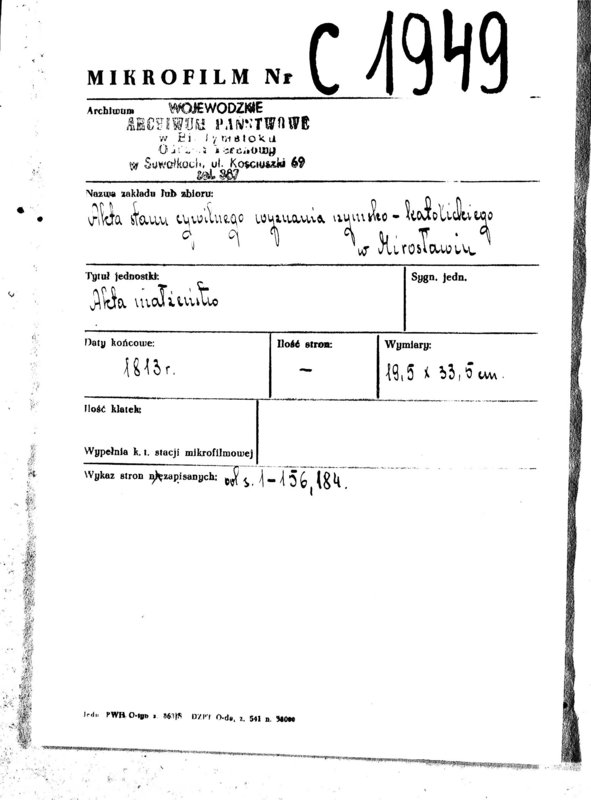 MIKROFILM Nr C 1949
Archiwum WOJEWÓDZKIE
ARCHIWUM PAŃSTWOWE
w Białymstoku
Oddział Terenowy
w Suwałkach, ul. Kościuszki 69
tel. 387
Nazwa zakładu lub zbioru:
Akta stanu cywilnego wyznania rzymsko-katolickiego
w Mirosławiu
Tytuł jednostki:
Sygn. jedn.
Akta małżeństw
Daty końcowe:
Ilość stron:
Wymiary:
1813 r.
—
19,5 x 33,5 cm.
Ilość klatek:
Wypełnia k. t. stacji mikrofilmowej
Wykaz stron zapisanych: od s. 1-156, 184.
PWH O-ton z. DZPT O-da, z. 541 n.